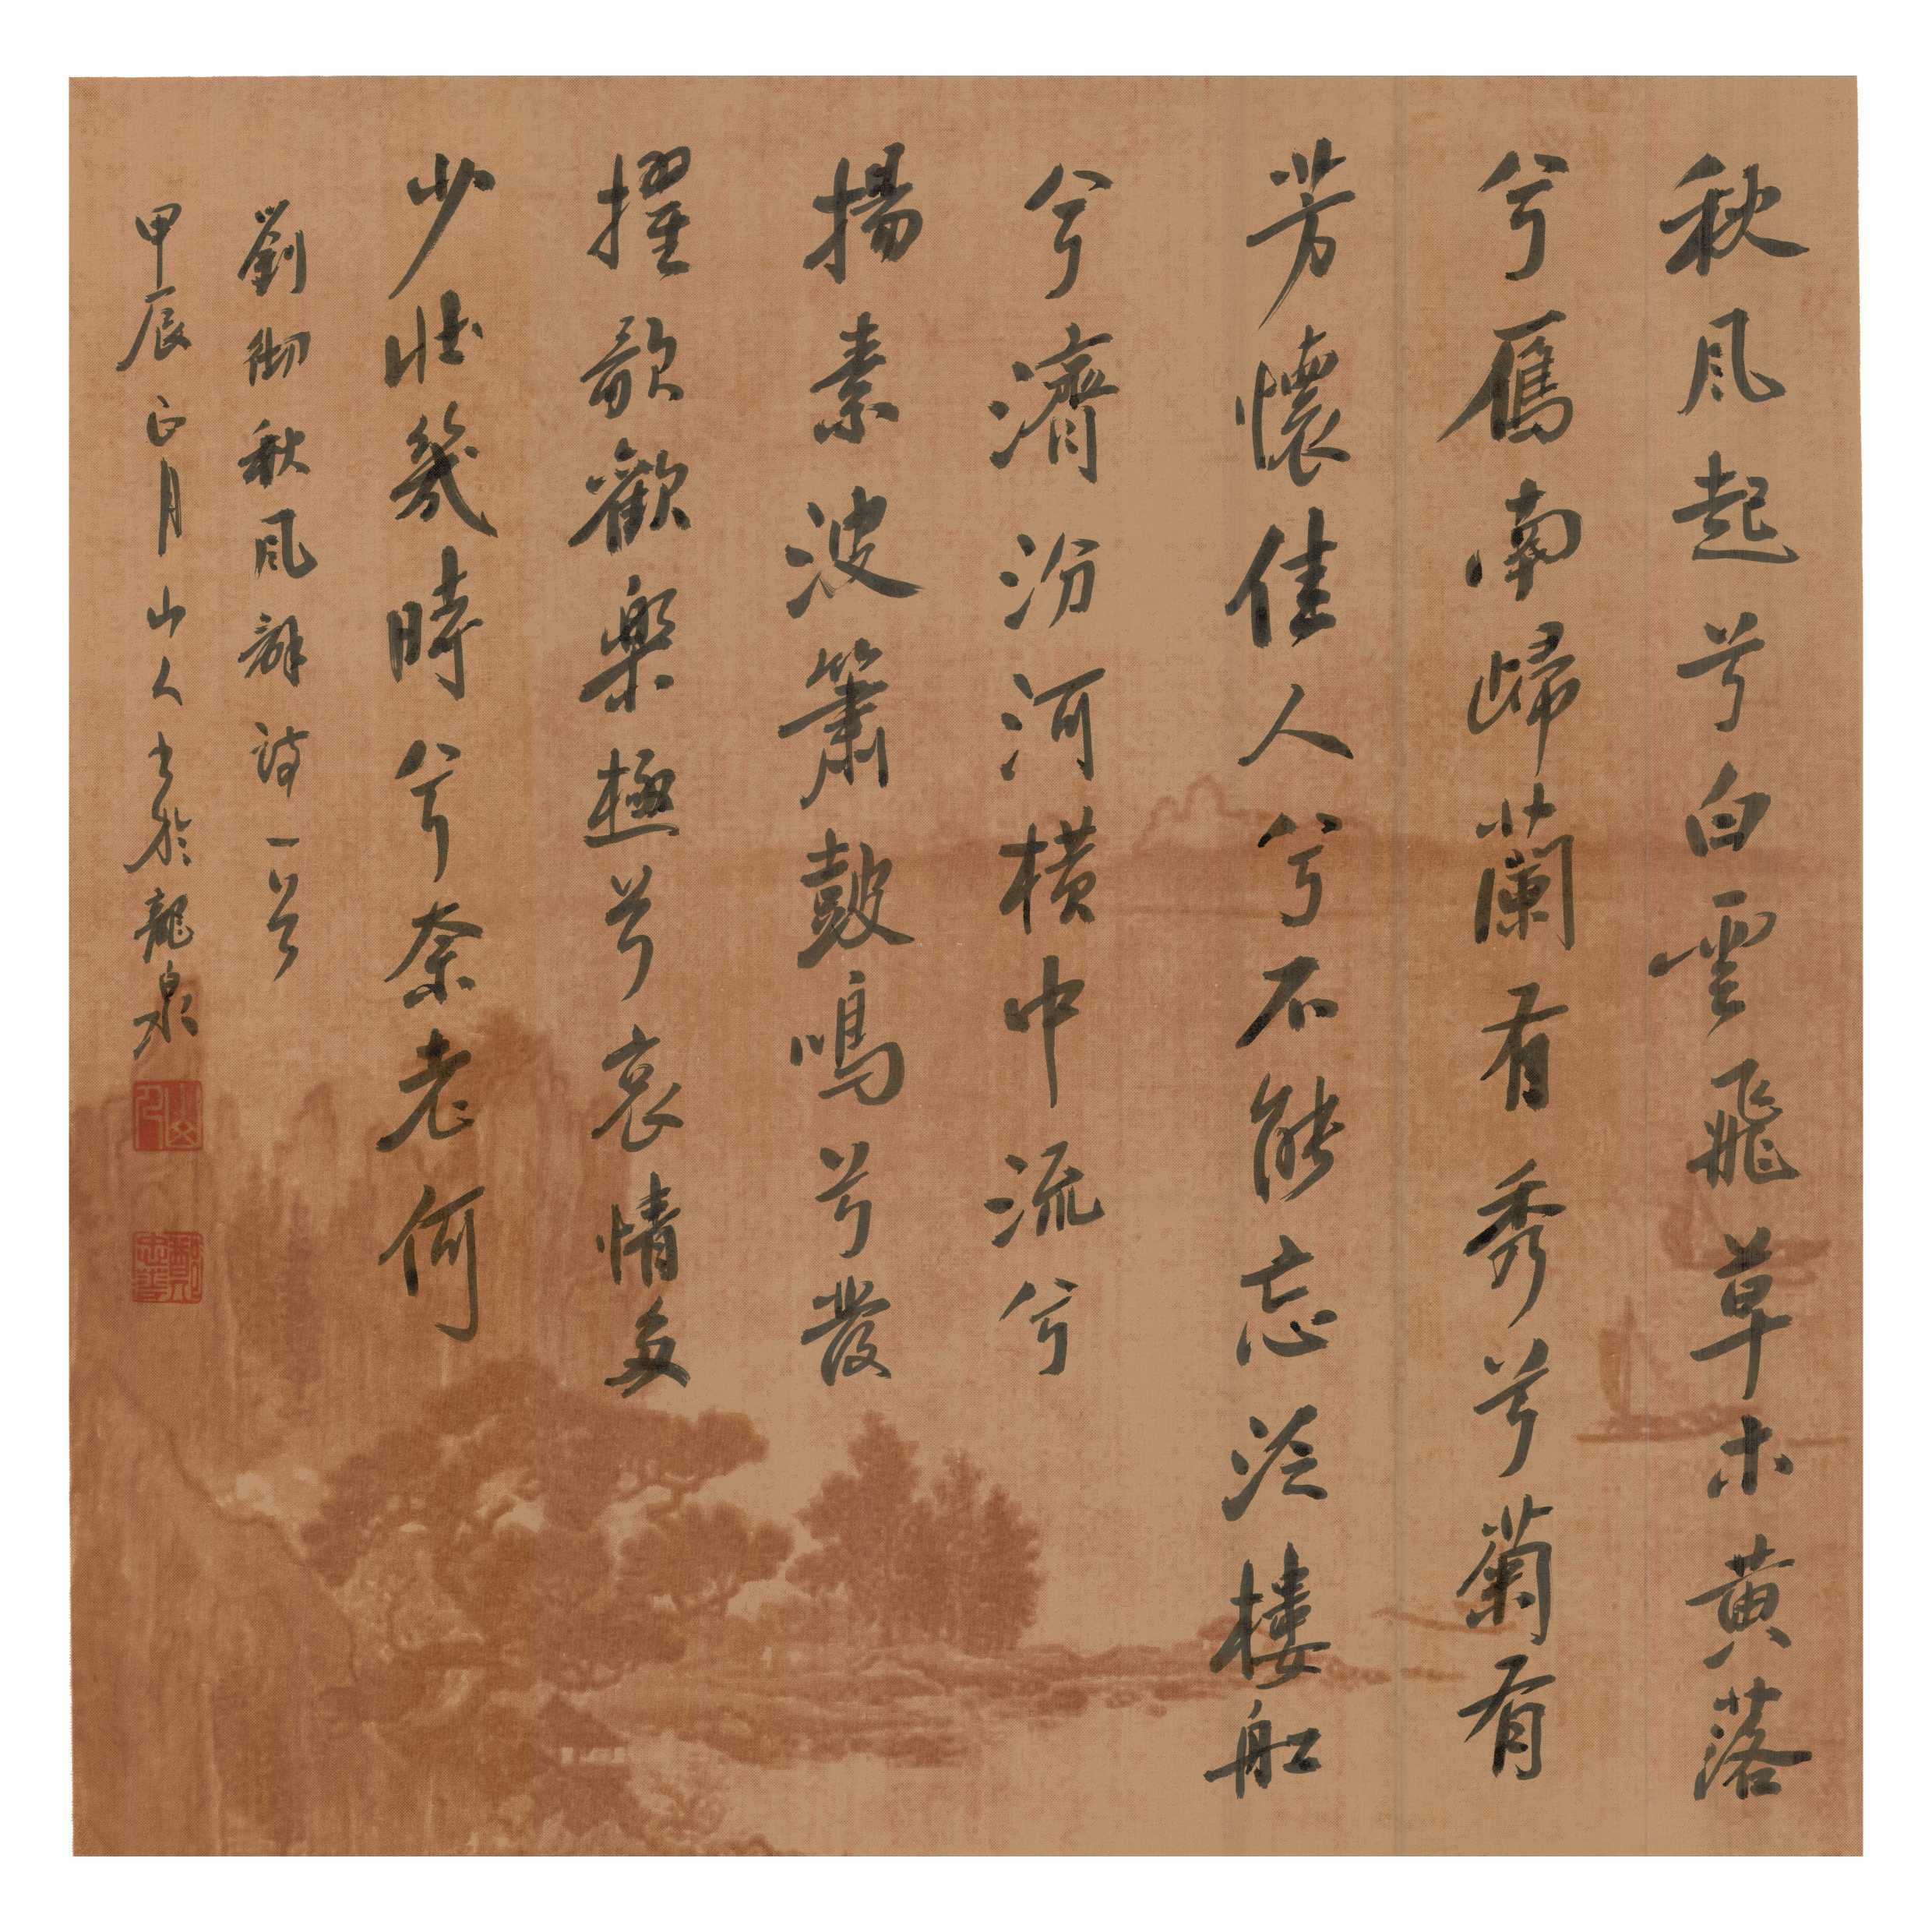 秋风起兮白雲飛草木黄落
兮雁南歸蘭有秀兮菊有
芳懷佳人兮不能忘泛樓船
兮濟汾河横中流兮
揚素波簫鼓鳴兮發
擢歌歡樂極兮哀情多
少壮幾時兮奈老何
劉彻秋风辭詩一首
甲辰正月山人书於龍泉